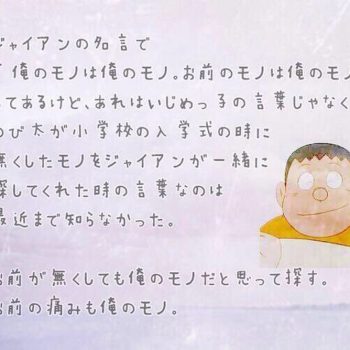 ジャイアンの名言で
「俺のモノは俺のモノ。お前のモノは俺のモノ
てあるけど、あれはいじめっ子の言葉じゃなく
のび太が小学校の入学式の時に
無くしたモノをジャイアンが一緒に
探してくれた時の言葉なのは
最近まで知らなかった。
お前が無くしても俺のモノだと思って探す。
お前の痛みも俺のモノ。